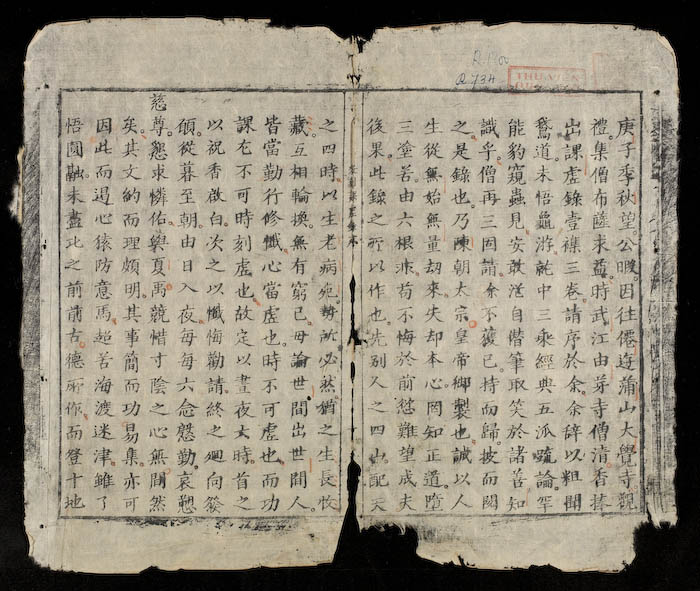 R.1700
R.734
THƯ VIỆN
庚子季秋望公暇因往僊遊蒲山大覺寺觀
禮集僧布薩求益時武江由芽寺僧清香捧
出課虛錄壹襍三卷請序於余余辭以粗聞
鵞道未悟龜游乾中三乘經典五派䟽論罕
能豹窺蟲見安敢逞自僣筆取笑於諸善知
識乎僧再三因請余不獲已持而歸披而閱
之是錄也乃陳朝太宗皇帝御製也誠以人
生從無始無量劫來失却本心罔知正道墮
三塗若由六根乖苟不悔於前愆難望成夫
後果此錄之所以作也先別人之四山配天
之四時以生老病死勢所必然猶之生長收
藏互相輪換無有窮已毋論世間出世間人
皆當勤行修懺心當虛也時不可虛也而功
課在不可時刻虛也故定以晝夜六時首之
以祝香啟白次之以懺悔勸請終之廻向發
願從暮至朝由日入夜每每六念慇勤哀懇
慈尊懇求憐佑與夏禹兢惜寸陰之心無間然
矣其文約而理頗明其事簡而功易集亦可
因此而遏心猿防意馬超苦海渡迷津雖了
悟圓融未盡比之前前古德所作而登十地